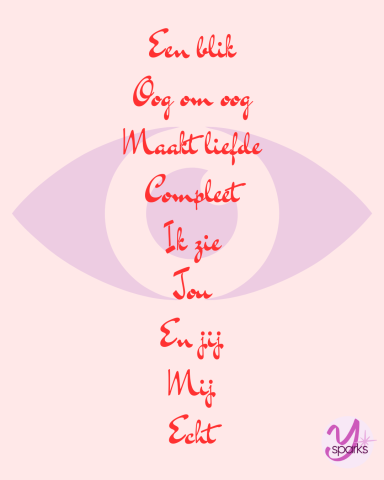 Een blik
Oog om oog
Maakt liefde
Compleet
Ik zie
Jou
En jij
Mij
Echt
y sparks